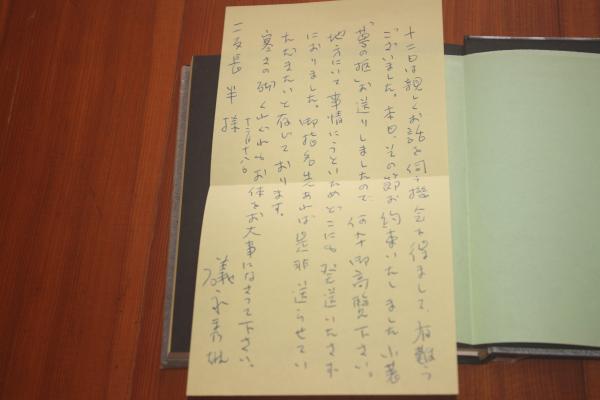 十二日は親しくお話を伺う機会を得まして、有難う
ございました。本日、その節お約束いたしました小著
お送りしましたので、何卒御高覧下さい。
地方にいて事情にうといためどこにも発送いたさず
におりました。御指名先あれば是非送らせてい
ただきたいと存じております。
寒さの砌くれぐれもお体をお大事になさって下さい。
十二月十八日
二反長 半 様